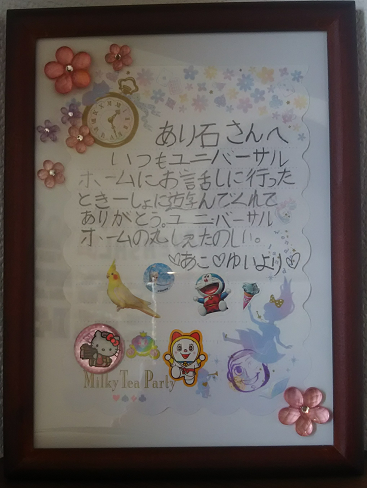 あり石さんへ
いつもユニバーサル
ホームにお話しに行った
ときーしょに遊んでくれて
ありがとう。ユニバーサル
ホームの丸しえたのしい。
♡あこ♡ゆいより♡
Milky Tea Party